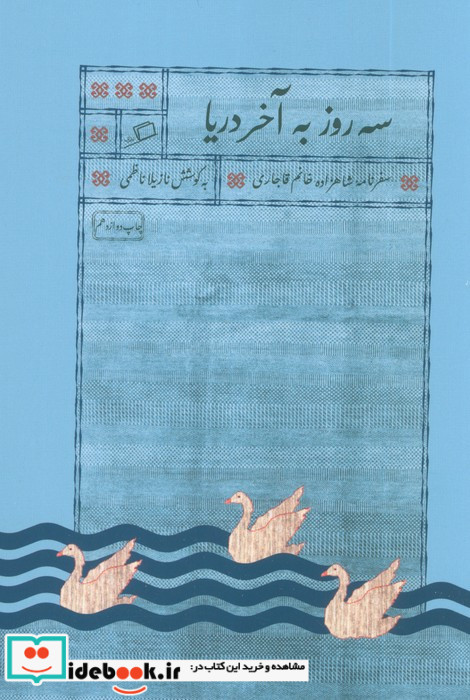 سه روز به آخر دریا
سفرنامه شاهزاده خانم قاجاری
به کوشش نازیلا ناظمی
چاپ دوازدهم
idebook.ir
مشاهده و خرید این کتاب در: